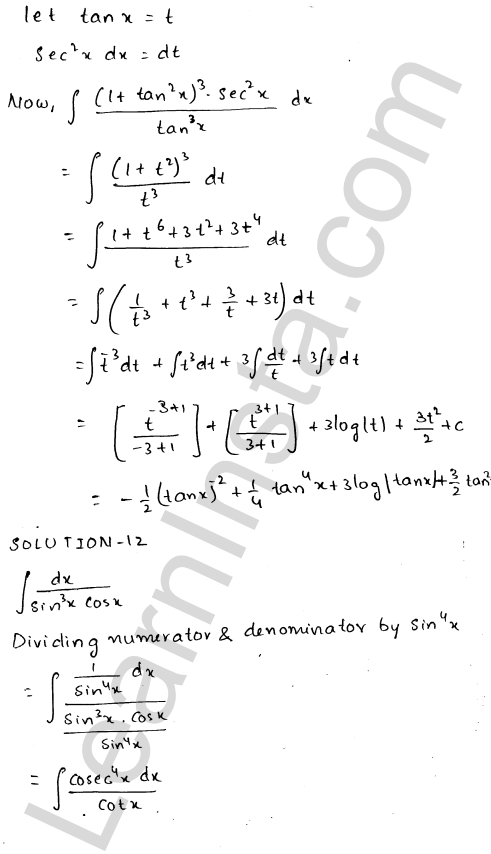 let tan x = t
sec²x dx = dt
Now, ∫ (1 + tan²x)³ · sec²x / tan³x dx
= ∫ (1 + t²)³ / t³ dt
= ∫ 1 + t⁶ + 3t² + 3t⁴ / t³ dt
= ∫ (1/t³ + t³ + 3/t + 3t) dt
= ∫ t⁻³ dt + ∫ t³ dt + 3∫ dt/t + 3∫ t dt
= [t⁻³⁺¹ / -3+1] + [t³⁺¹ / 3+1] + 3 log(t) + 3t²/2 + c
= - 1/2 (tan x)⁻² + 1/4 tan⁴x + 3 log|tan x| + 3/2 tan²
SOLUTION-12
∫ dx / sin³x cos x
Dividing numerator & denominator by sin⁴x
= ∫ 1/sin⁴x dx / sin³x . cos x / sin⁴x
= ∫ cosec⁴x dx / cot x
LearnInsta.com